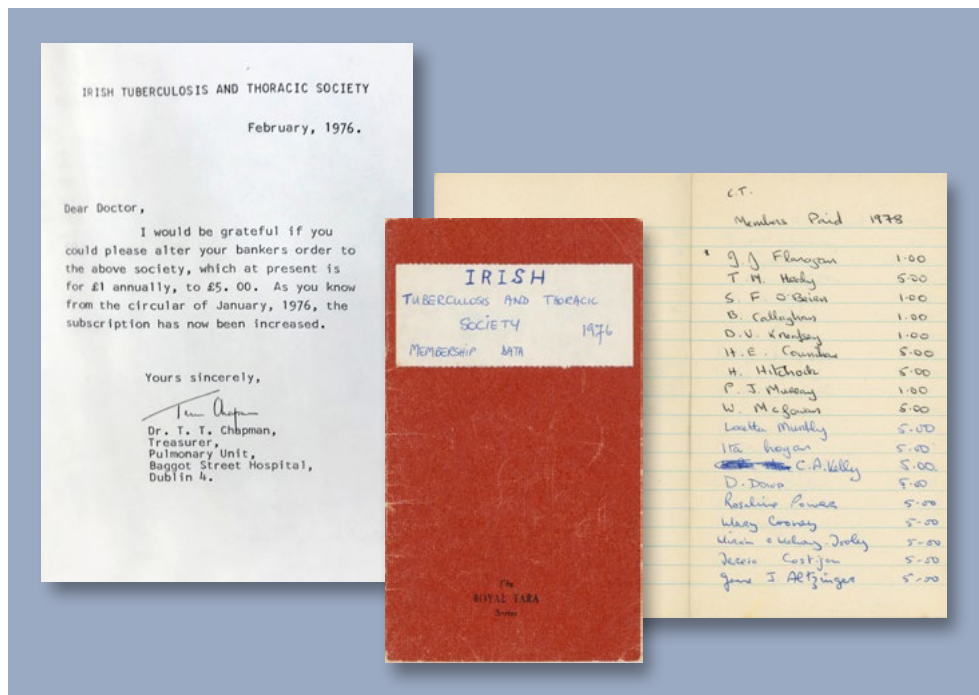 IRISH TUBERCULOSIS AND THORACIC SOCIETY
February, 1976.
Dear Doctor,
I would be grateful if you
could please alter your bankers order to
the above society, which at present is
for £1 annually, to £5. 00. As you know
from the circular of January, 1976, the
subscription has now been increased.
Yours sincerely,
Dr. T. T. Chapman,
Treasurer,
Pulmonary Unit,
Baggot Street Hospital,
Dublin 4.
IRISH
TUBERCULOSIS AND THORACIC
SOCIETY 1976
MEMBERSHIP DATA
The
ROYAL TARA
Series
C.T.
Members Paid 1978
J. J Flanagan 1.00
T. M. Healy 5.00
S. F. O'Brien 1.00
B. Callaghan 1.00
D.V. 1.00
H.E. Counihan 5.00
H. Hitchcock 5.00
P. J. Murray 1.00
W. McGowan 5.00
Loretta 5.00
Ita hogan 5.00
C.A. Kelly 5.00
D. 5.00
Rosaline Power 5-00
Mary Cooney 5-00
5-00
5-00
J. Altzinger 5-00